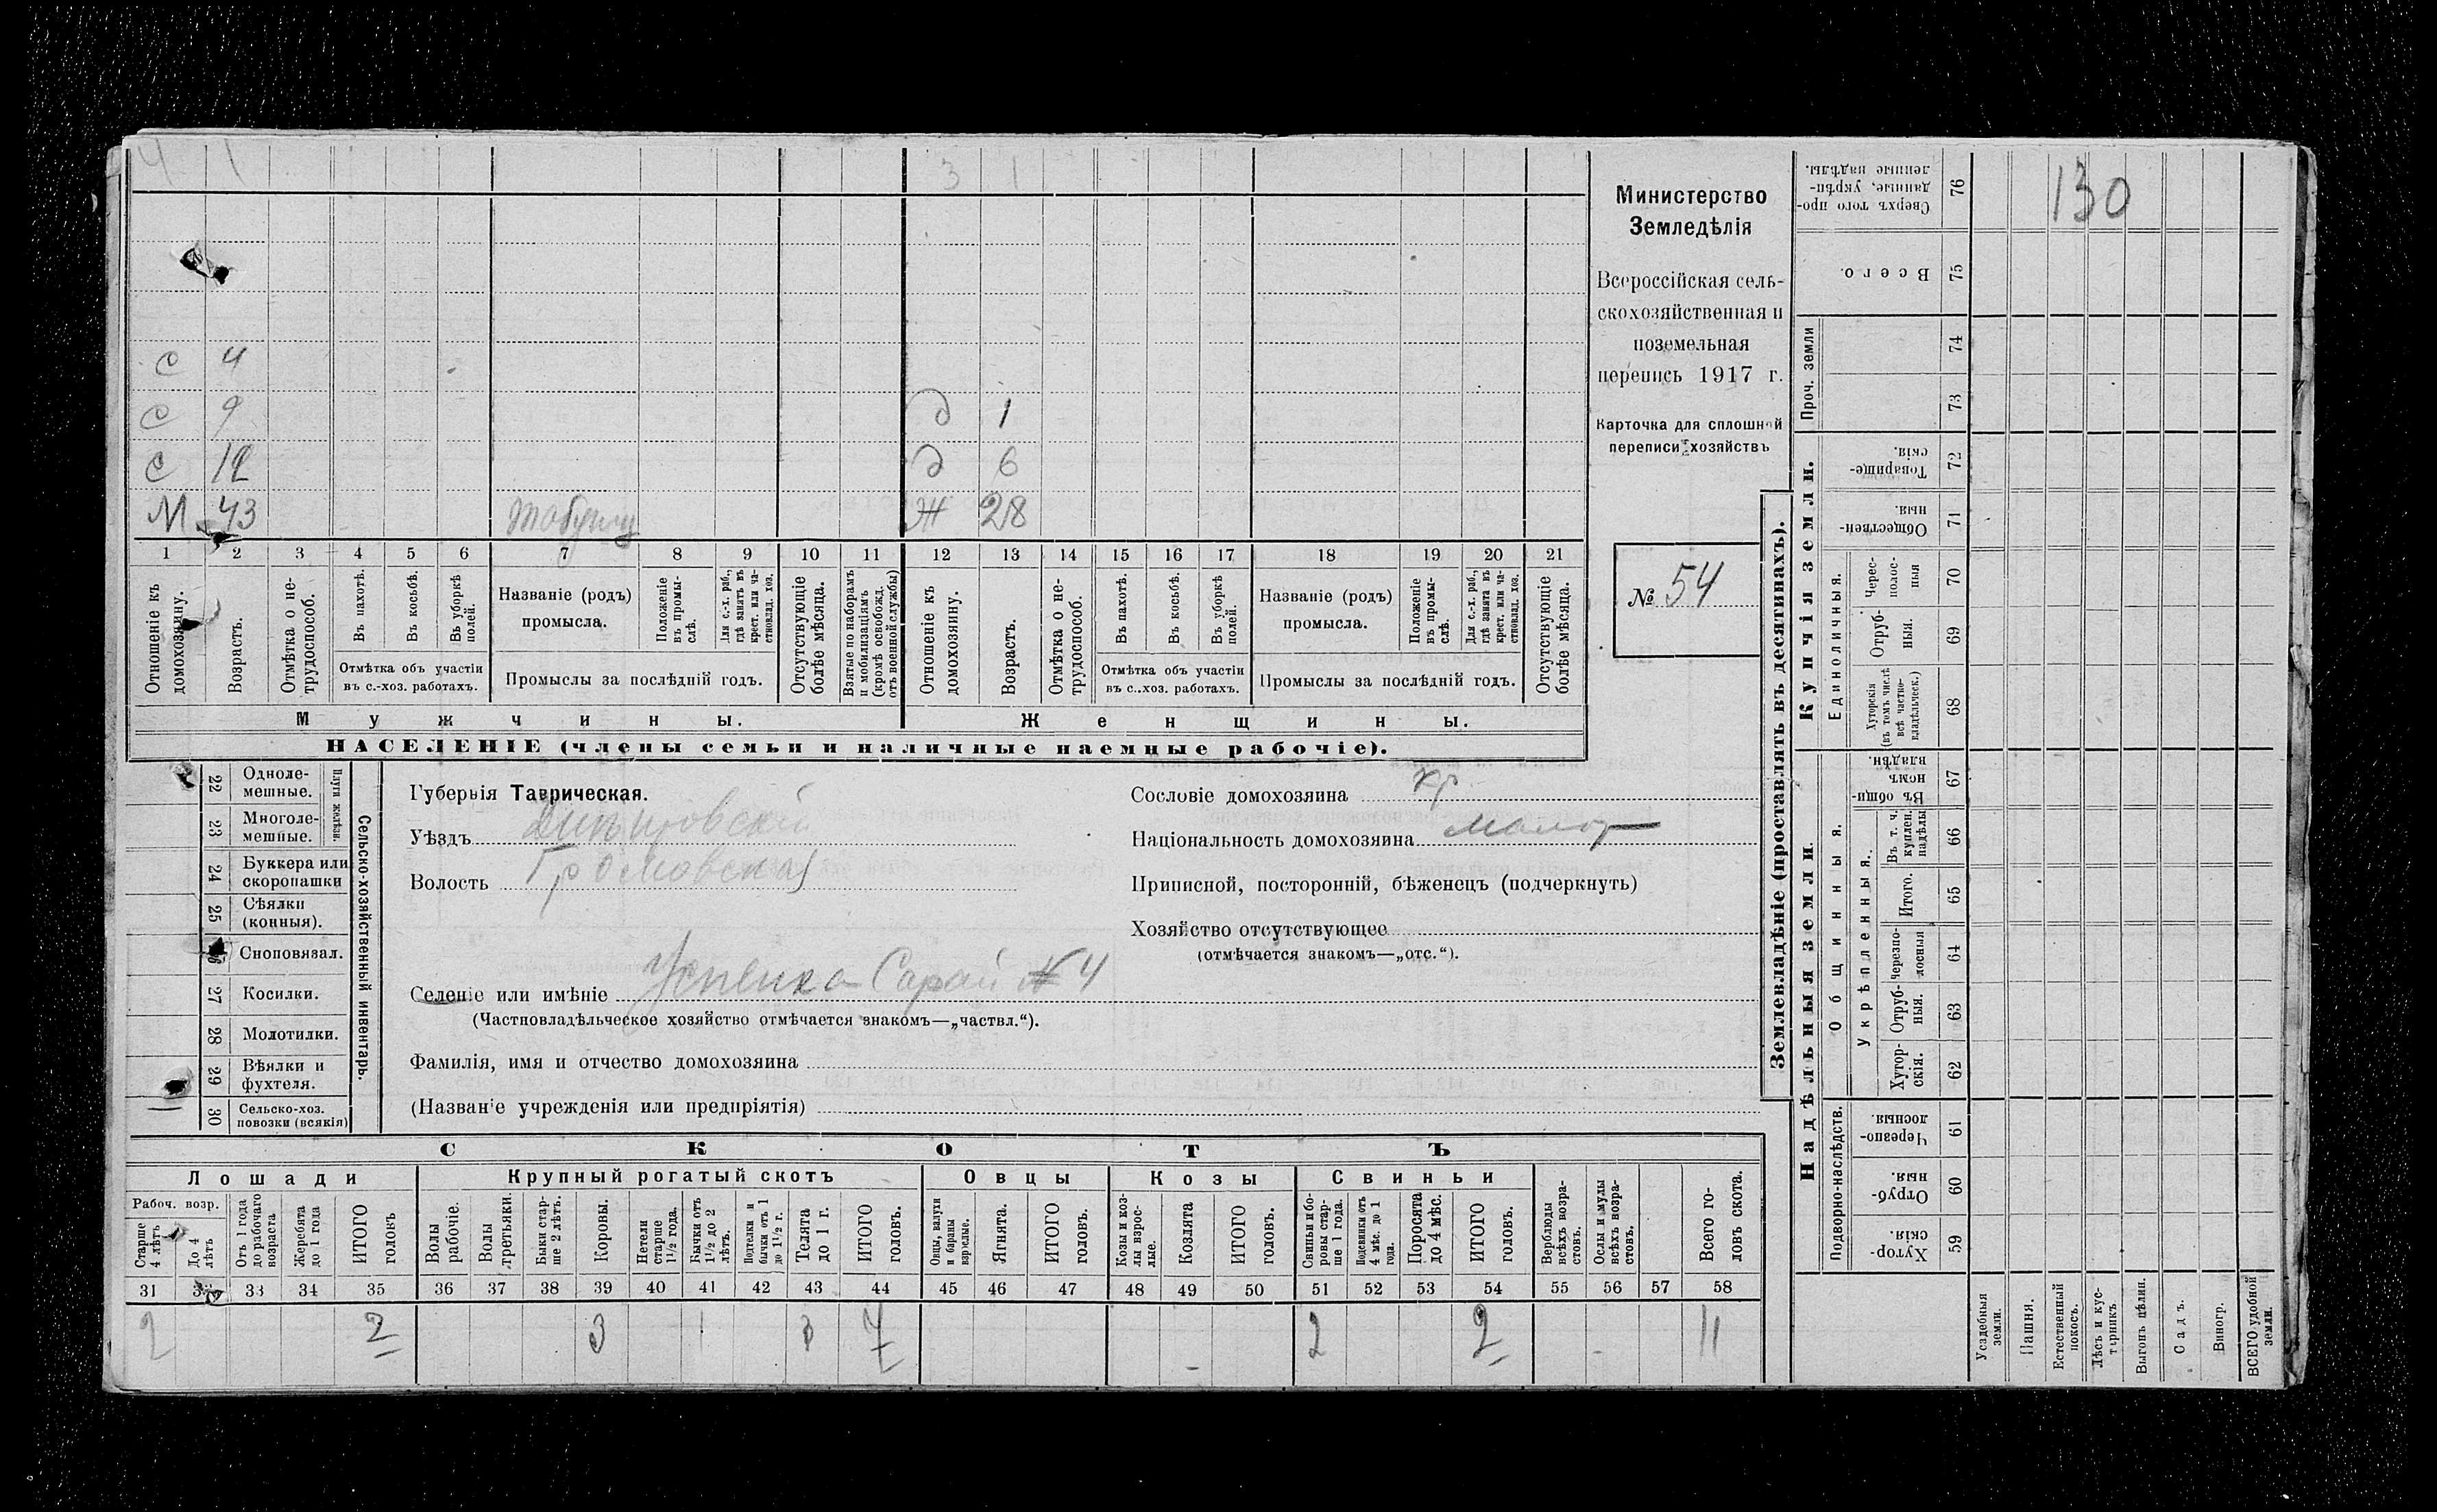 4 1 3 1
с 4
с 9 д 1
с 12 д 6
М 43 табунщ Ж 28
1 2 3 4 5 6 7 8 9 10 11 12 13 14 15 16 17 18 19 20 21
Отношеніе къ домохозяину.
Возрастъ.
Отмѣтка о не-трудоспособ.
Въ пахотѣ.
Въ косьбѣ.
Въ уборкѣ полей.
Отмѣтка объ участіи
въ с.-хоз. работахъ.
Названіе (родъ)
промысла.
Положеніе въ промы-слѣ.
Для с.-х. раб., гдѣ занятъ въ крест. или ча-стновлад. хоз.
Промыслы за послѣдній годъ.
Отсутствующіе болѣе мѣсяца.
Взятые по наборамъ и мобилизаціямъ (кромѣ освобожд. отъ военной службы)
Отношеніе къ домохозяину.
Возрастъ.
Отмѣтка о не-трудоспособ.
Въ пахотѣ.
Въ косьбѣ.
Въ уборкѣ полей.
Отмѣтка объ участіи
въ с.-хоз. работахъ.
Названіе (родъ)
промысла.
Положеніе въ промы-слѣ.
Для с.-х. раб., гдѣ занята въ крест. или ча-стновлад. хоз.
Промыслы за послѣдній годъ.
Отсутствующіе болѣе мѣсяца.
Мужчины. Женщины.
НАСЕЛЕНІЕ (члены семьи и наличные наемные рабочіе).
Министерство
Земледѣлія
Всероссійская сель-
скохозяйственная и
поземельная
перепись 1917 г.
Карточка для сплошной
переписи хозяйствъ
№ 54
Сельско-хозяйственный инвентарь.
Плуги желѣзн.
22 Одноле-мешные.
23 Многоле-мешные.
24 Буккера или скоропашки
25 Сѣялки (конныя).
26 Сноповязал.
27 Косилки.
28 Молотилки.
29 Вѣялки и фухтеля.
30 Сельско-хоз. повозки (всякія)
Губернія Таврическая.
Уѣздъ Днѣпровскій
Волость Громовская
Селеніе или имѣніе Успенка-Сарай № 4
(Частновладѣльческое хозяйство отмѣчается знакомъ—„частвл.“).
Фамилія, имя и отчество домохозяина
(Названіе учрежденія или предпріятія)
Сословіе домохозяина кр
Національность домохозяина малор
Приписной, посторонній, бѣженецъ (подчеркнуть)
Хозяйство отсутствующее
(отмѣчается знакомъ—„отс.“).
СКОТЪ
Лошади Крупный рогатый скотъ Овцы Козы Свиньи
Рабоч. возр.
Старше 4 лѣтъ
До 4 лѣтъ
Отъ 1 года до рабочаго возраста
Жеребята до 1 года
ИТОГО головъ
Волы рабочіе.
Волы третьяки.
Быки стар-ше 2 лѣтъ.
Коровы.
Нетели старше 1½ года.
Бычки отъ 1½ до 2 лѣтъ.
Подтелки и бычки отъ 1 до 1½ г.
Телята до 1 г.
ИТОГО головъ.
Овцы, валухи и бараны взрослые.
Ягнята.
ИТОГО головъ.
Козы и коз-лы взрос-лые.
Козлята
ИТОГО головъ.
Свиньи и бо-ровы стар-ше 1 года.
Подсвинки отъ 4 мѣс. до 1 года.
Поросята до 4 мѣс.
ИТОГО головъ.
Верблюды всѣхъ возра-стовъ.
Ослы и мулы всѣхъ возра-стовъ.
Всего го-ловъ скота.
31 33 34 35 36 37 38 39 40 41 42 43 44 45 46 47 48 49 50 51 52 53 54 55 56 57 58
2 2 3 1 3 7 2 2 11
Землевладѣніе (проставлять въ десятинахъ).
Сверхъ того про-данные, укрѣп-ленные надѣлы. 76
130
Всего. 75
Проч. земли 74 73
Купчія земли.
Товарище-скія. 72
Обществен-ныя. 71
Единоличныя.
Черес-полос-ныя 70
Отруб-ныя. 69
Хуторскія (въ томъ числѣ всѣ частно-владѣльческ.) 68
Надѣльныя земли.
Общинныя.
Въ общин-номъ владѣн. 67
Укрѣпленныя.
Въ т. ч. куплен. надѣлы 66
Итого. 65
Черезпо-лосныя 64
Отруб-ныя. 63
Хутор-скія. 62
Подворно-наслѣдств.
Черезпо-лосныя. 61
Отруб-ныя. 60
Хутор-скія. 59
Усадебныя земли.
Пашня.
Естественный покосъ.
Лѣсъ и кус-тарникъ
Выгонъ цѣлин.
Садъ.
Виногр.
ВСЕГО удобной земли.